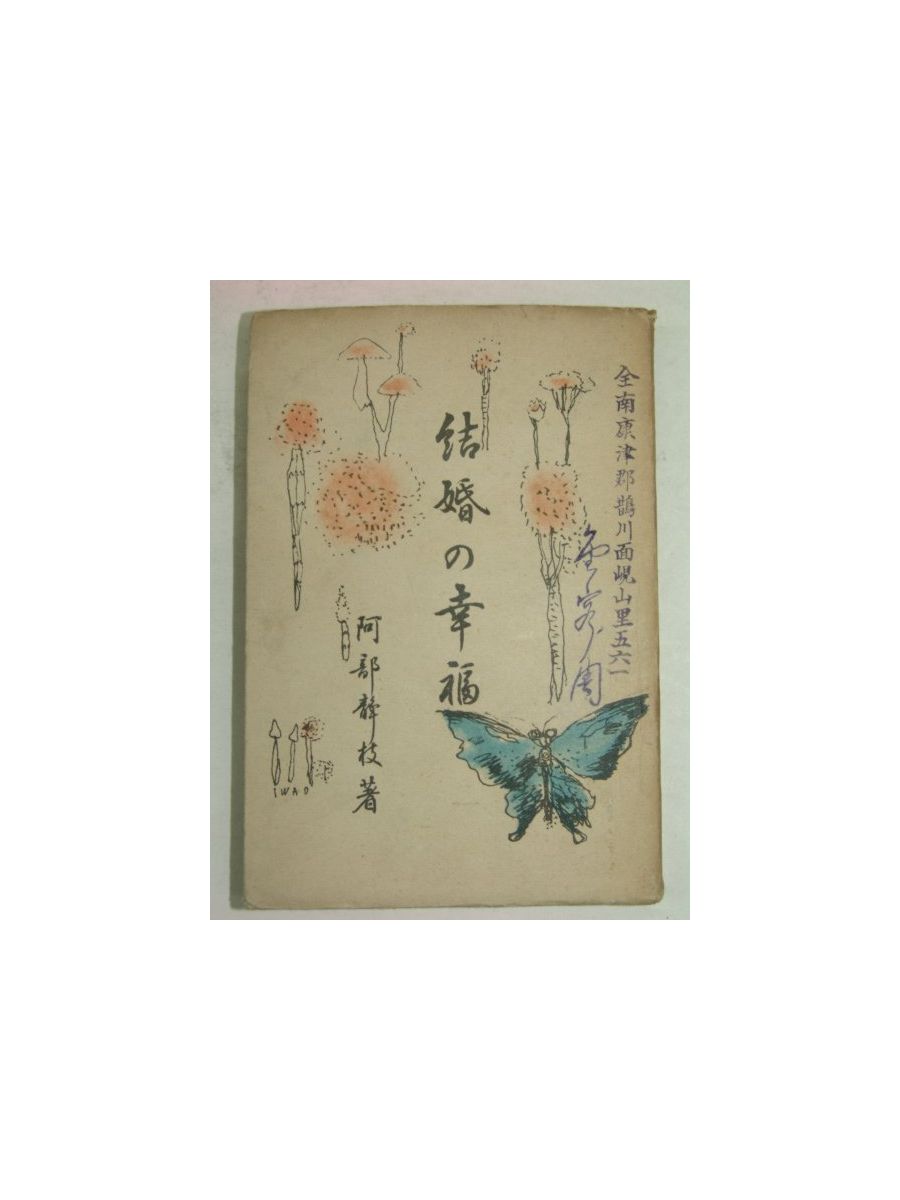 全南康津郡鵲川面峴山里五六一
結婚の幸福
阿部静枝著
IWAO